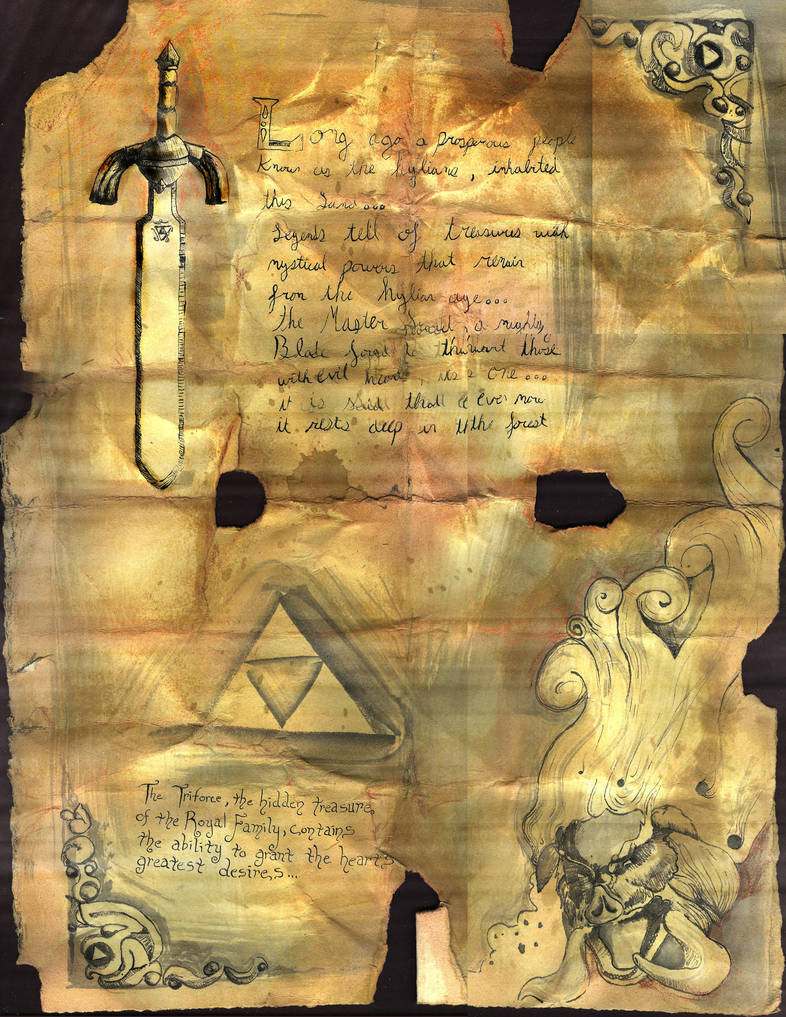 Long ago a prosperous people
Known as the hylians, inhabited
this Land...
Legends tell of treasures with
mystical powers that remain
from the hylian age...
the Master Sword, a mighty
Blade forged to thwart those
with evil hearts, is one...
it is said that ever now
it rests deep in the forest
The Triforce, the hidden treasure,
of the Royal Family, contains
the ability to grant the heart's
greatest desires...